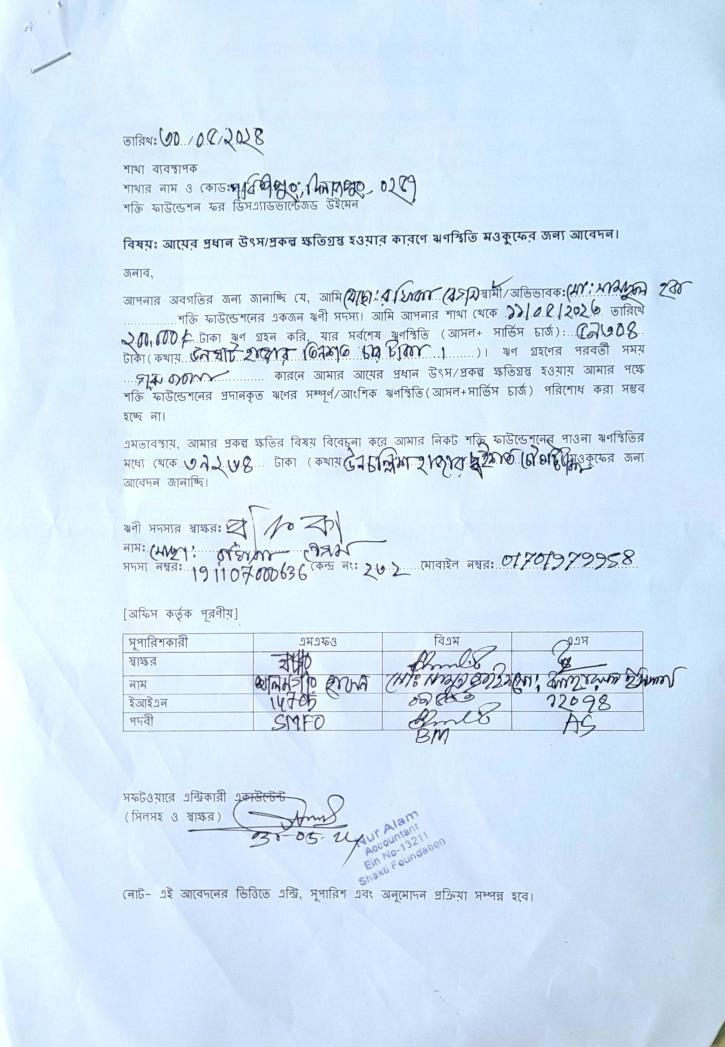 তারিখ: ৩০/০৫/২০২৪
শাখা ব্যবস্থাপক
শাখার নাম ও কোড: পার্বতীপুর, দিনাজপুর - ০২৫৭
শক্তি ফাউন্ডেশন ফর ডিসএ্যাডভান্টেজড উইমেন
বিষয়: আয়ের প্রধান উৎস/প্রকল্প ক্ষতিগ্রস্থ হওয়ার কারণে ঋণস্থিতি মওকুফের জন্য আবেদন।
জনাব,
আপনার অবগতির জন্য জানাচ্ছি যে, আমি মোছা: রফিকা বেগম স্বামী/অভিভাবক: মো: সামছুল হক
শক্তি ফাউন্ডেশনের একজন ঋণী সদস্য। আমি আপনার শাখা থেকে তারিখে
২০০,০০০/- টাকা ঋণ গ্রহন করি, যার সর্বশেষ ঋণস্থিতি (আসল+ সার্ভিস চার্জ): ৫৯৩০৪
টাকা (কথায় উনষাট হাজার তিনশত চার টাকা)। ঋণ গ্রহণের পরবর্তী সময়
কারনে আমার আয়ের প্রধান উৎস/প্রকল্প ক্ষতিগ্রস্থ হওয়ায় আমার পক্ষে
শক্তি ফাউন্ডেশনের প্রদানকৃত ঋণের সম্পূর্ণ/আংশিক ঋণস্থিতি (আসল+সার্ভিস চার্জ) পরিশোধ করা সম্ভব
হচ্ছে না।
এমতাবস্থায়, আমার প্রকল্প ক্ষতির বিষয় বিবেচনা করে আমার নিকট শক্তি ফাউন্ডেশনের পাওনা ঋণস্থিতির
মধ্যে থেকে ৩৯২৬৪ টাকা (কথায় উনচল্লিশ হাজার দুইশত চৌষট্টি) মওকুফের জন্য
আবেদন জানাচ্ছি।
ঋণী সদস্যের স্বাক্ষর:
নাম: মোছা: রফিকা বেগম
সদস্য নম্বর: 191107000636 কেন্দ্র নং: ২৩২ মোবাইল নম্বর: 01701979958
[অফিস কর্তৃক পূরণীয়]
সুপারিশকারী এমএফও বিএম এএস
স্বাক্ষর
নাম
ইআইএন 14705 12098
পদবী SMFO BM AS
সফটওয়ারে এন্ট্রিকারী একাউন্টেন্ট
(সিলসহ ও স্বাক্ষর)
30-05-24
Nur Alam
Accountant
Ein No-13211
Shakti Foundation
নোট- এই আবেদনের ভিত্তিতে এন্ট্রি, সুপারিশ এবং অনুমোদন প্রক্রিয়া সম্পন্ন হবে।